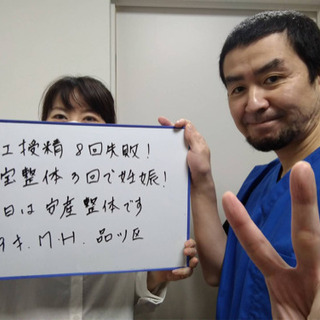 工授精 8回失敗!
宝整体 3回で妊娠!
日は安産整体です
才. M.H. 品川区